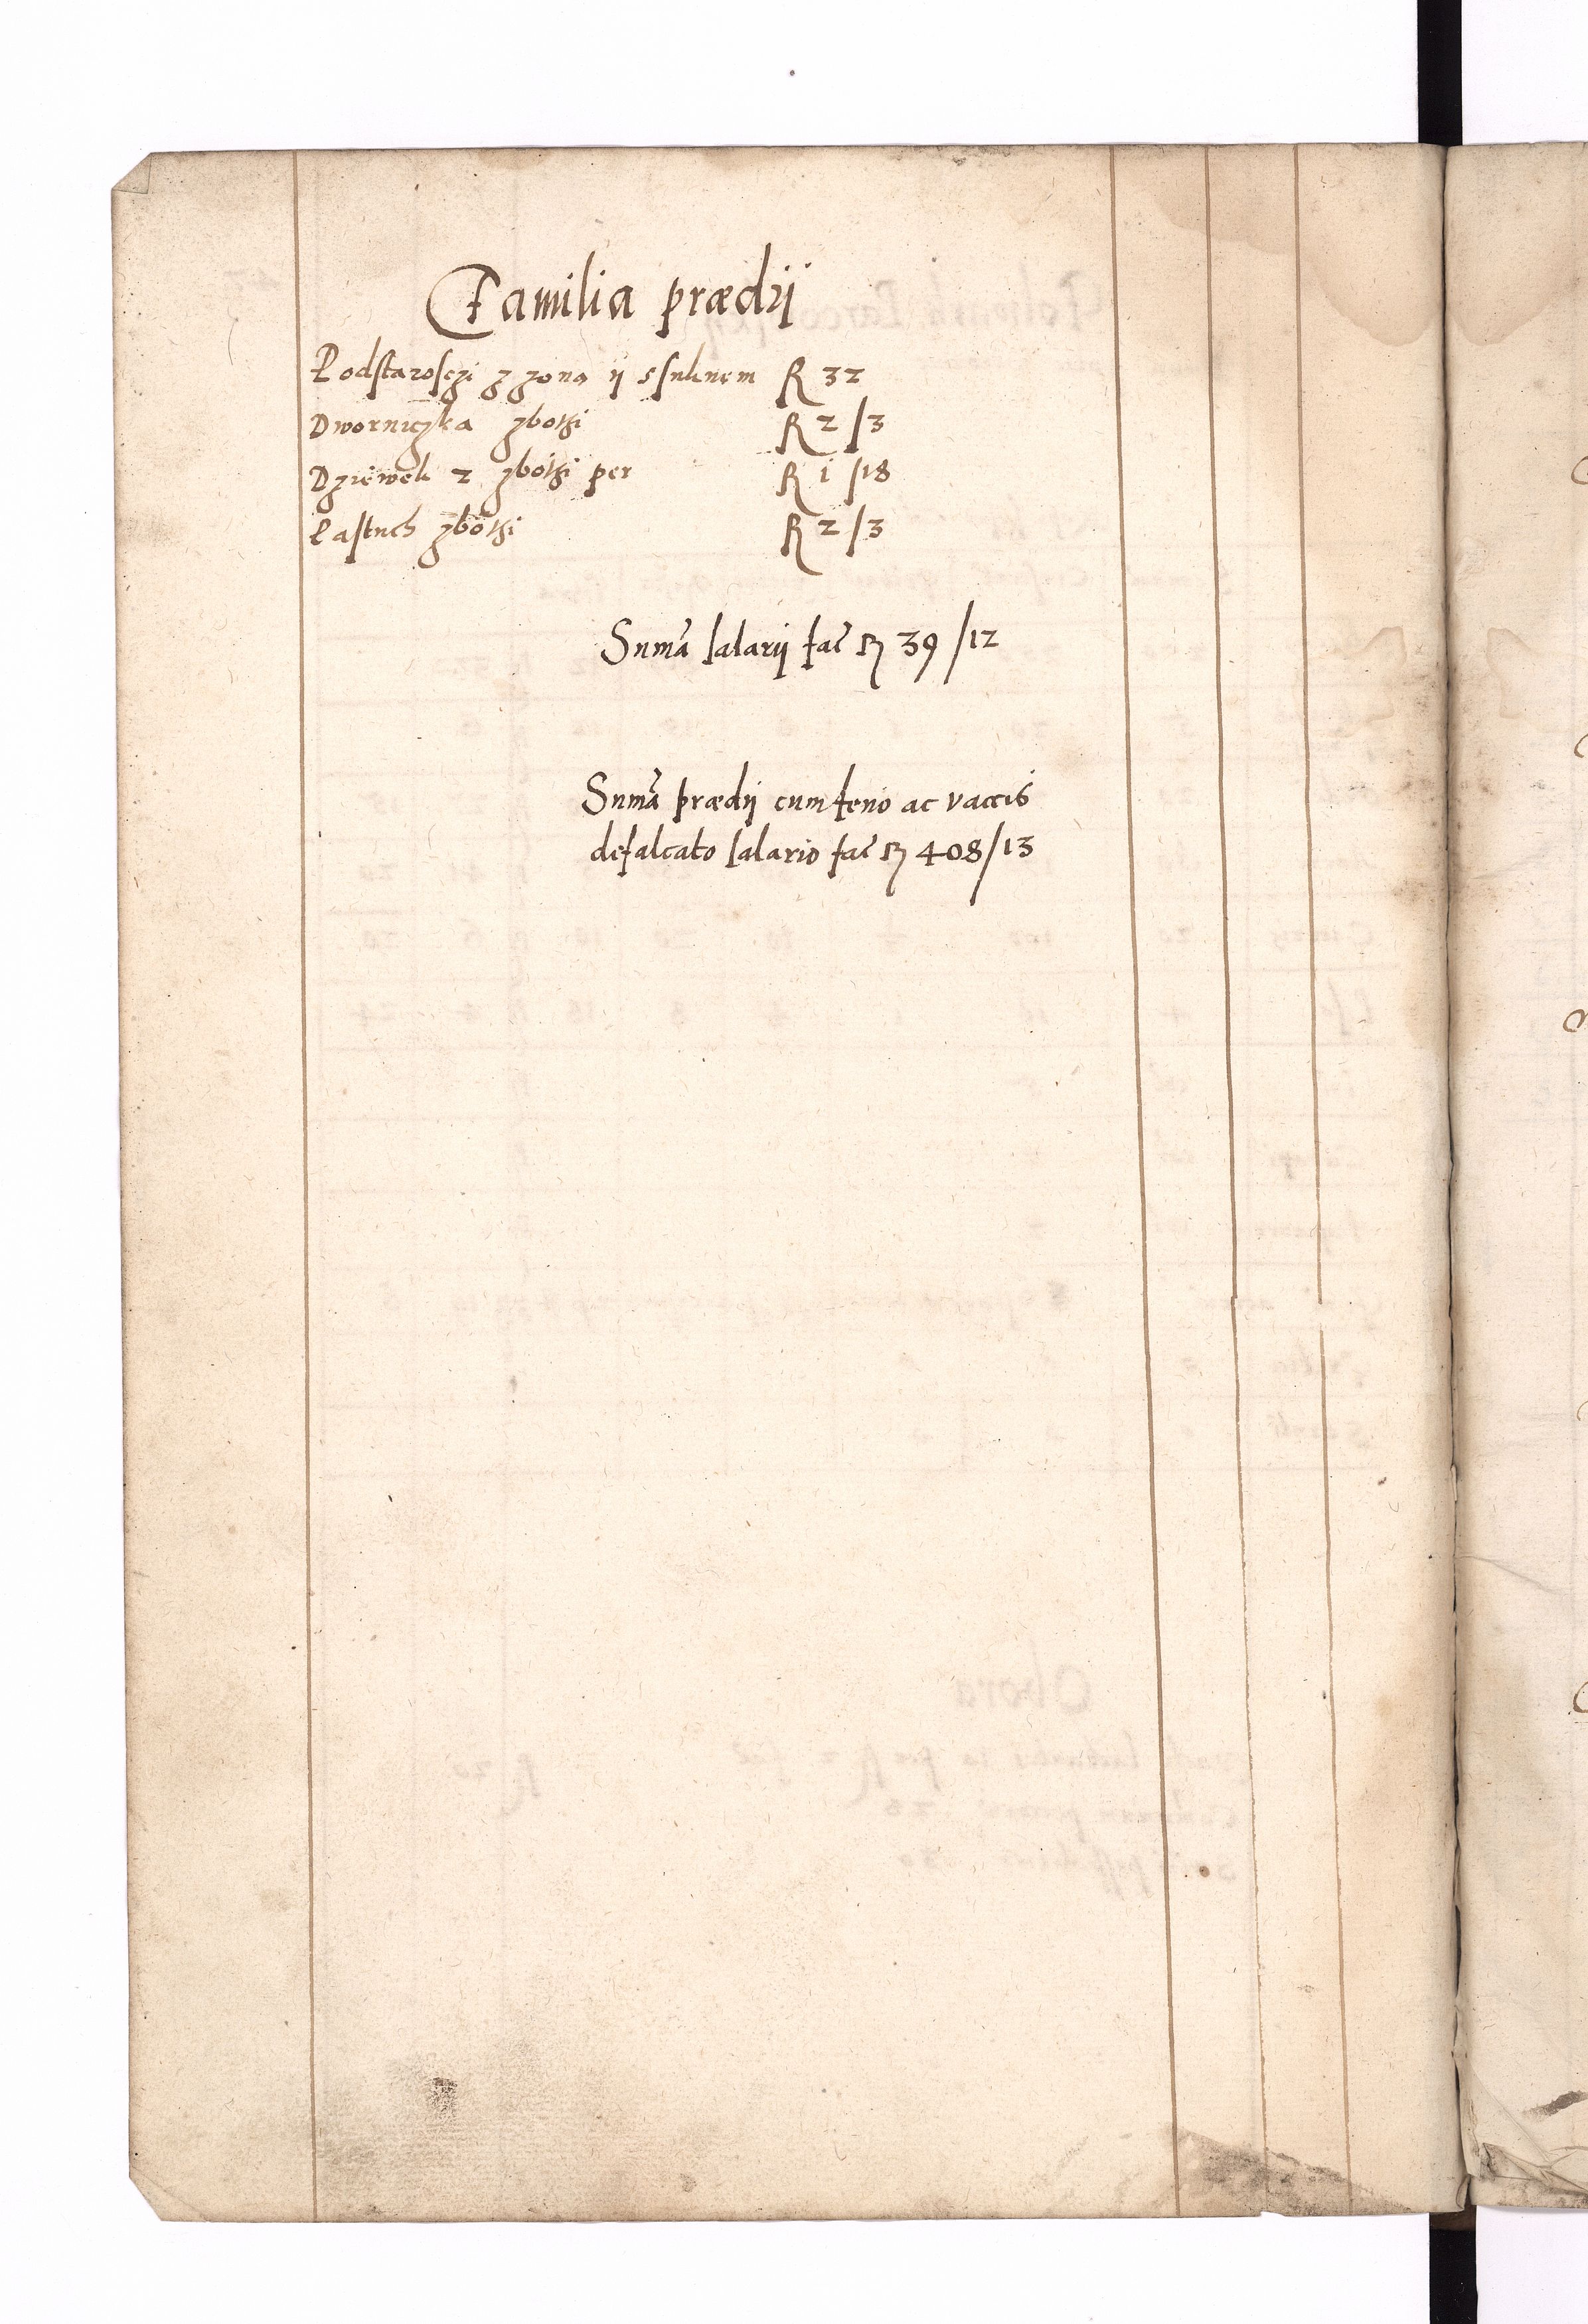 Familia prædij
Podstarosczi z zoną ij ssuknem R 32
Dworniczka zbothi R 2/3
Dziewek 2 zbothi per R 1/18
Pastuch zbothi R 2/3
Suma salarij fac R 39/12
Suma prædij cum feno ac vaccis
defalcato salario fac R 408/13